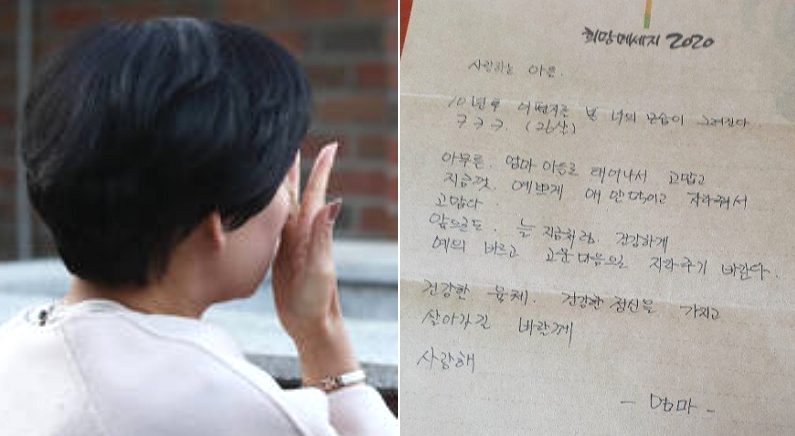 희망메세지 2020
사랑하는 아들.
10년후 이편지를 본 너의 모습이 그려진다
ㅋㅋㅋ (26살)
아무튼. 엄마 아들로 태어나서 고맙고
지금껏. 예쁘게 애 안먹이고 자라줘서
고맙다.
앞으로도. 늘 지금처럼. 건강하게
예의 바르고 고운마음으로 자라주기 바란다.
건강한 육체. 건강한 정신을 가지고
살아가길 바랄께
사랑해
- 엄마 -